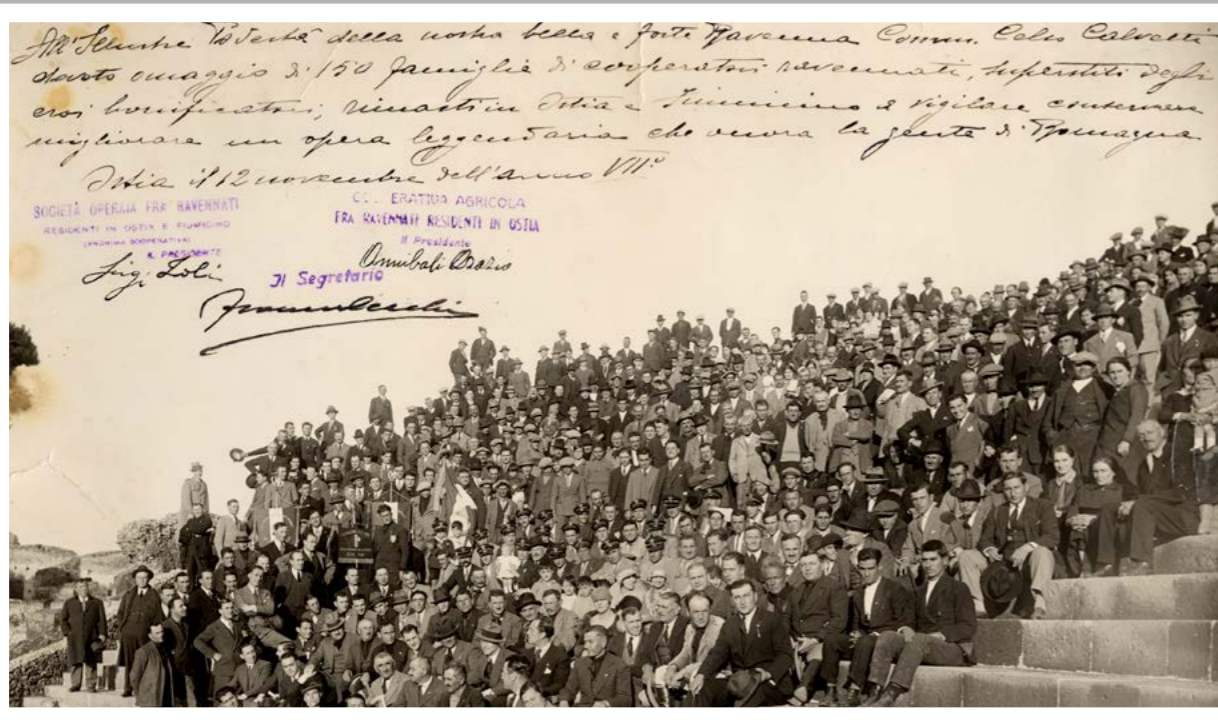 All'Illustre Podestà della nostra bella e forte Ravenna Comm. Celso Calvetti
devoto omaggio di 150 famiglie di cooperatori ravennati, superstiti degli
eroi bonificatori, rimasti in Ostia e Fiumicino a vigilare conservare
migliorare un opera leggendaria che onora la gente di Romagna
Ostia il 12 novembre dell'anno VIIº
SOCIETÀ OPERAIA FRA RAVENNATI
RESIDENTI IN OSTIA E FIUMICINO
(ANONIMA COOPERATIVA)
IL PRESIDENTE
Luigi Zoli
CO ERATIVA AGRICOLA
FRA RAVENNATI RESIDENTI IN OSTIA
Il Presidente
Annibali Orazio
Il Segretario